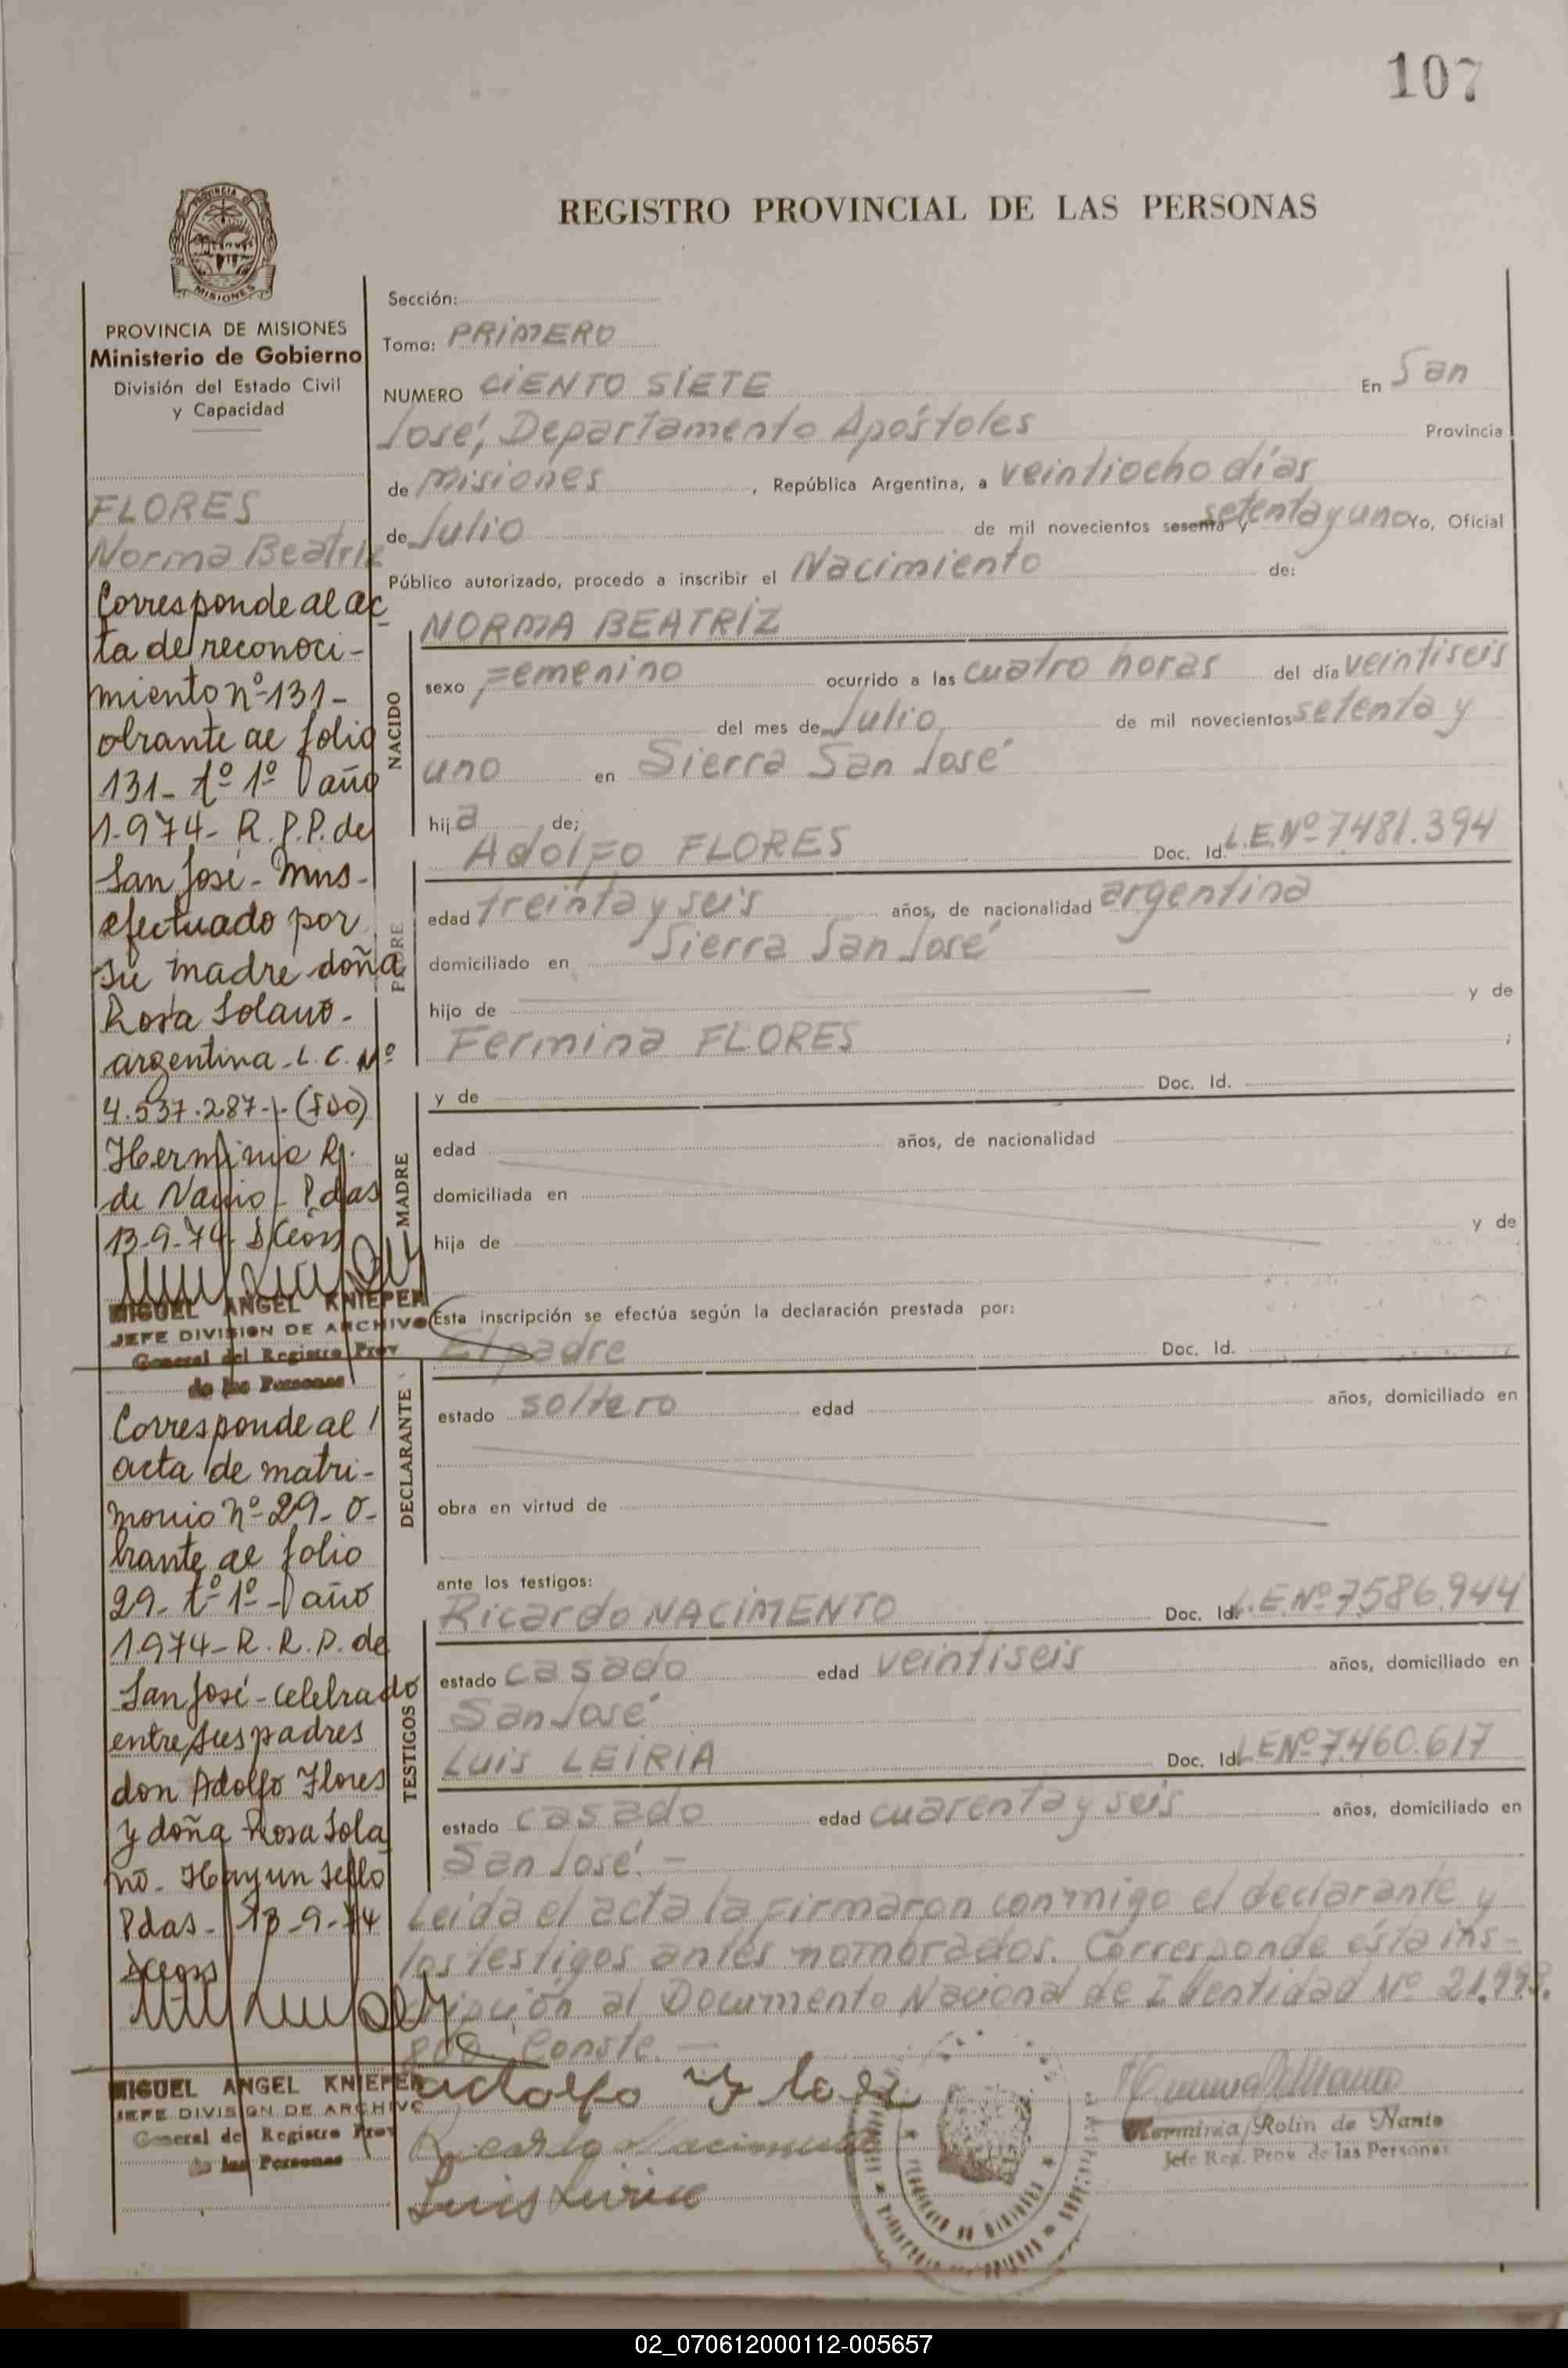 107
REGISTRO PROVINCIAL DE LAS PERSONAS
PROVINCIA
MISIONES
PROVINCIA DE MISIONES
Ministerio de Gobierno
División del Estado Civil
y Capacidad
FLORES
Norma Beatriz
Corresponde al ac
ta de reconoci-
miento nº 131-
obrante al folio
131- tº 1º año
1.974- R.P.P. de
San José - Mns-
efectuado por
su madre doña
Rosa Solano-
argentina - L.C. Nº
4.537.287-.- (FDO)
Herminia R.
de Nanio - Pdas
13-9-74
MIGUEL ANGEL KNIEPER
JEFE DIVISION DE ARCHIVO
General del Registro Prov
de las Personas
Corresponde al
acta de matri-
monio nº 29- o-
brante al folio
29- tº 1º - año
1.974- R.R.P. de
San José - celebrado
entre sus padres
don Adolfo Flores
y doña Rosa Sola
no. Hay un sello
Pdas- 13-9-74
MIGUEL ANGEL KNIEPER
JEFE DIVISION DE ARCHIVO
General del Registro Prov
de las Personas
Sección:
Tomo: PRIMERO
NUMERO CIENTO SIETE En San
José, Departamento Apóstoles Provincia
de Misiones, República Argentina, a veintiocho días
de Julio de mil novecientos sesenta y setenta y uno Yo, Oficial
Público autorizado, procedo a inscribir el Nacimiento de:
NACIDO
NORMA BEATRIZ
sexo Femenino ocurrido a las cuatro horas del día veintiseis
del mes de Julio de mil novecientos setenta y
uno en Sierra San José
hija de;
PADRE
Adolfo FLORES Doc. Id. L.E.Nº 7481.394
edad treinta y seis años, de nacionalidad argentina
domiciliado en Sierra San José
hijo de y de
Fermina FLORES ;
MADRE
y de Doc. Id.
edad años, de nacionalidad
domiciliada en
hija de y de
Esta inscripción se efectúa según la declaración prestada por:
DECLARANTE
El padre Doc. Id.
estado soltero edad años, domiciliado en
obra en virtud de
ante los testigos:
TESTIGOS
Ricardo NACIMENTO Doc. Id. L.E.Nº 7.586.944
estado casado edad veintiseis años, domiciliado en
San José
Luis LEIRIA Doc. Id. LENº 7.460.617
estado casado edad cuarenta y seis años, domiciliado en
San José. -
Leída el acta la firmaron conmigo el declarante y
los testigos antes nombrados. Corresponde ésta ins-
cripción al Documento Nacional de Identidad Nº 21.
Conste. -
adolfo
Ricardo Nacimento
Luis Leiria
Herminia Rolin de Nanio
Jefe Reg. Prov. de las Personas
02_070612000112-005657